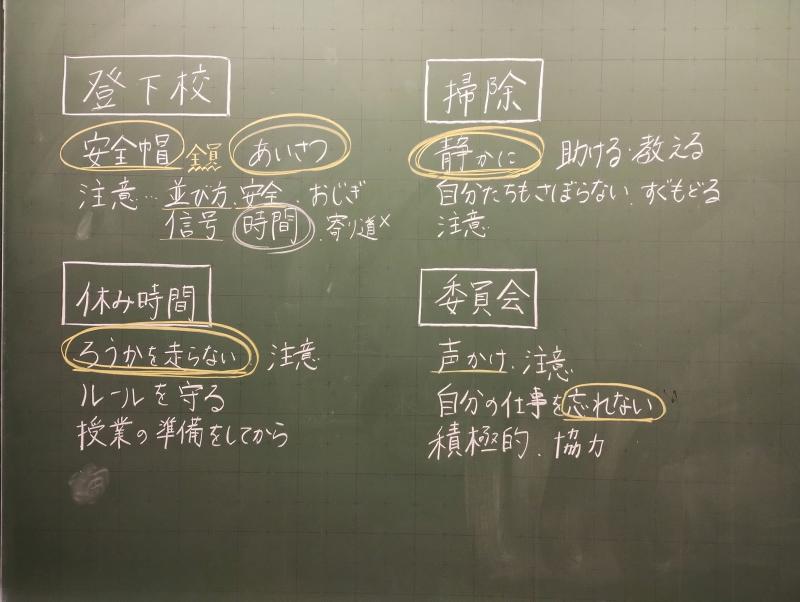 登下校
安全帽 全員 あいさつ
注意… 並び方、安全、おじぎ
信号 時間、寄り道×
掃除
静かに 助ける・教える
自分たちもさぼらない、すぐもどる
注意
休み時間
ろうかを走らない 注意
ルールを守る
授業の準備をしてから
委員会
声かけ、注意
自分の仕事を忘れない
積極的、協力